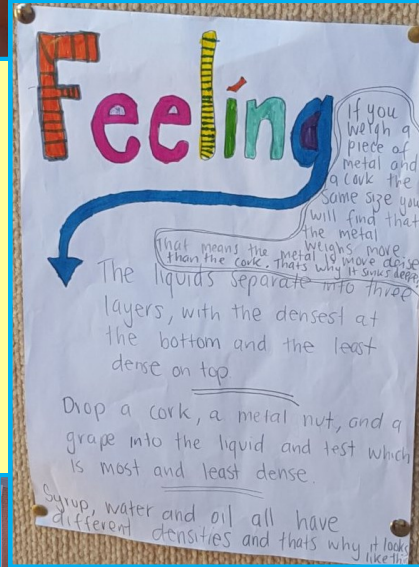 Feeling
If you
weigh a
piece of
metal and
a cork the
same size you
will find that
the metal
weighs more
That means the metal is more dense
than the cork. Thats why it sinks deeper
The liquids separate into three
layers, with the densest at
the bottom and the least
dense on top
Drop a cork, a metal nut, and a
grape into the liquid and test which
is most and least dense.
Syrup, water and oil all have
different densities and thats why it looks
like this